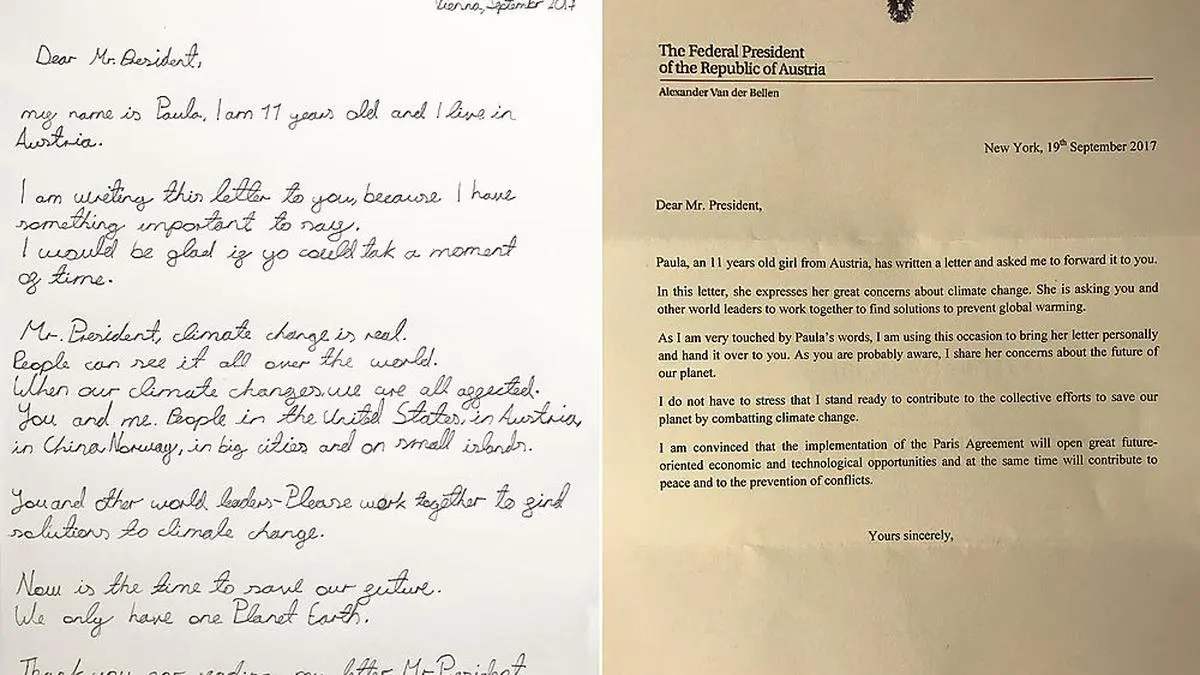 Vienna, September 2017
Dear Mr. President,
my name is Paula, I am 11 years old and I live in
Austria.
I am writing this letter to you, because I have
something important to say.
I would be glad if yo could tak a moment
of time.
Mr. President, climate change is real.
People can see it all over the world.
When our climate changes, we are all affected.
You and me. People in the United States, in Austria,
in China, Norway, in big cities and on small islands.
You and other world leaders-Please work together to find
solutions to climate change.
Now is the time to save our future.
We only have one Planet Earth.
Thank you for reading my letter Mr. President
The Federal President
of the Republic of Austria
Alexander Van der Bellen
New York, 19th September 2017
Dear Mr. President,
Paula, an 11 years old girl from Austria, has written a letter and asked me to forward it to you.
In this letter, she expresses her great concerns about climate change. She is asking you and
other world leaders to work together to find solutions to prevent global warming.
As I am very touched by Paula's words, I am using this occasion to bring her letter personally
and hand it over to you. As you are probably aware, I share her concerns about the future of
our planet.
I do not have to stress that I stand ready to contribute to the collective efforts to save our
planet by combatting climate change.
I am convinced that the implementation of the Paris Agreement will open great future-
oriented economic and technological opportunities and at the same time will contribute to
peace and to the prevention of conflicts.
Yours sincerely,